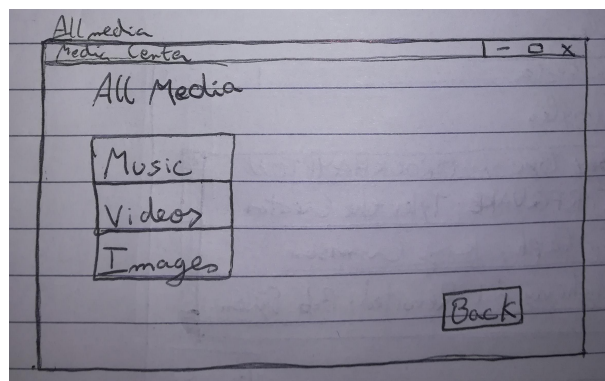 All media
Media Center - □ x
All Media
Music
Videos
Images
Back